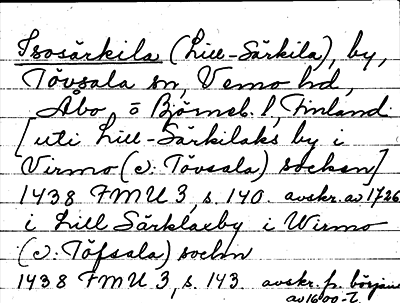 Isosärkila (Lill-Särkila), by,
Tövsala sn, Vemo hd,
Åbo o Björneb. l, Finland
[uti Lill-Särkilaks by i
Virmo (ɔ: Tövsala) socken]
1438 FMU 3, s. 140. avskr. av 1726
i Lill Särklaxby i Wirmo
(ɔ: Töfsala) sochn
1438 FMU 3, s. 143. avskr. fr. början
av 1600-t.